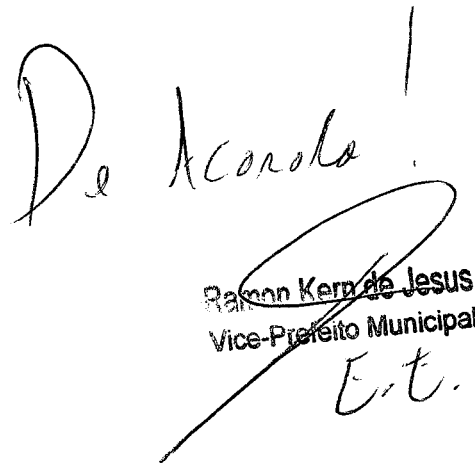 De Acordo!
Ramon Kern de Jesus
Vice-Prefeito Municipal
E.t.